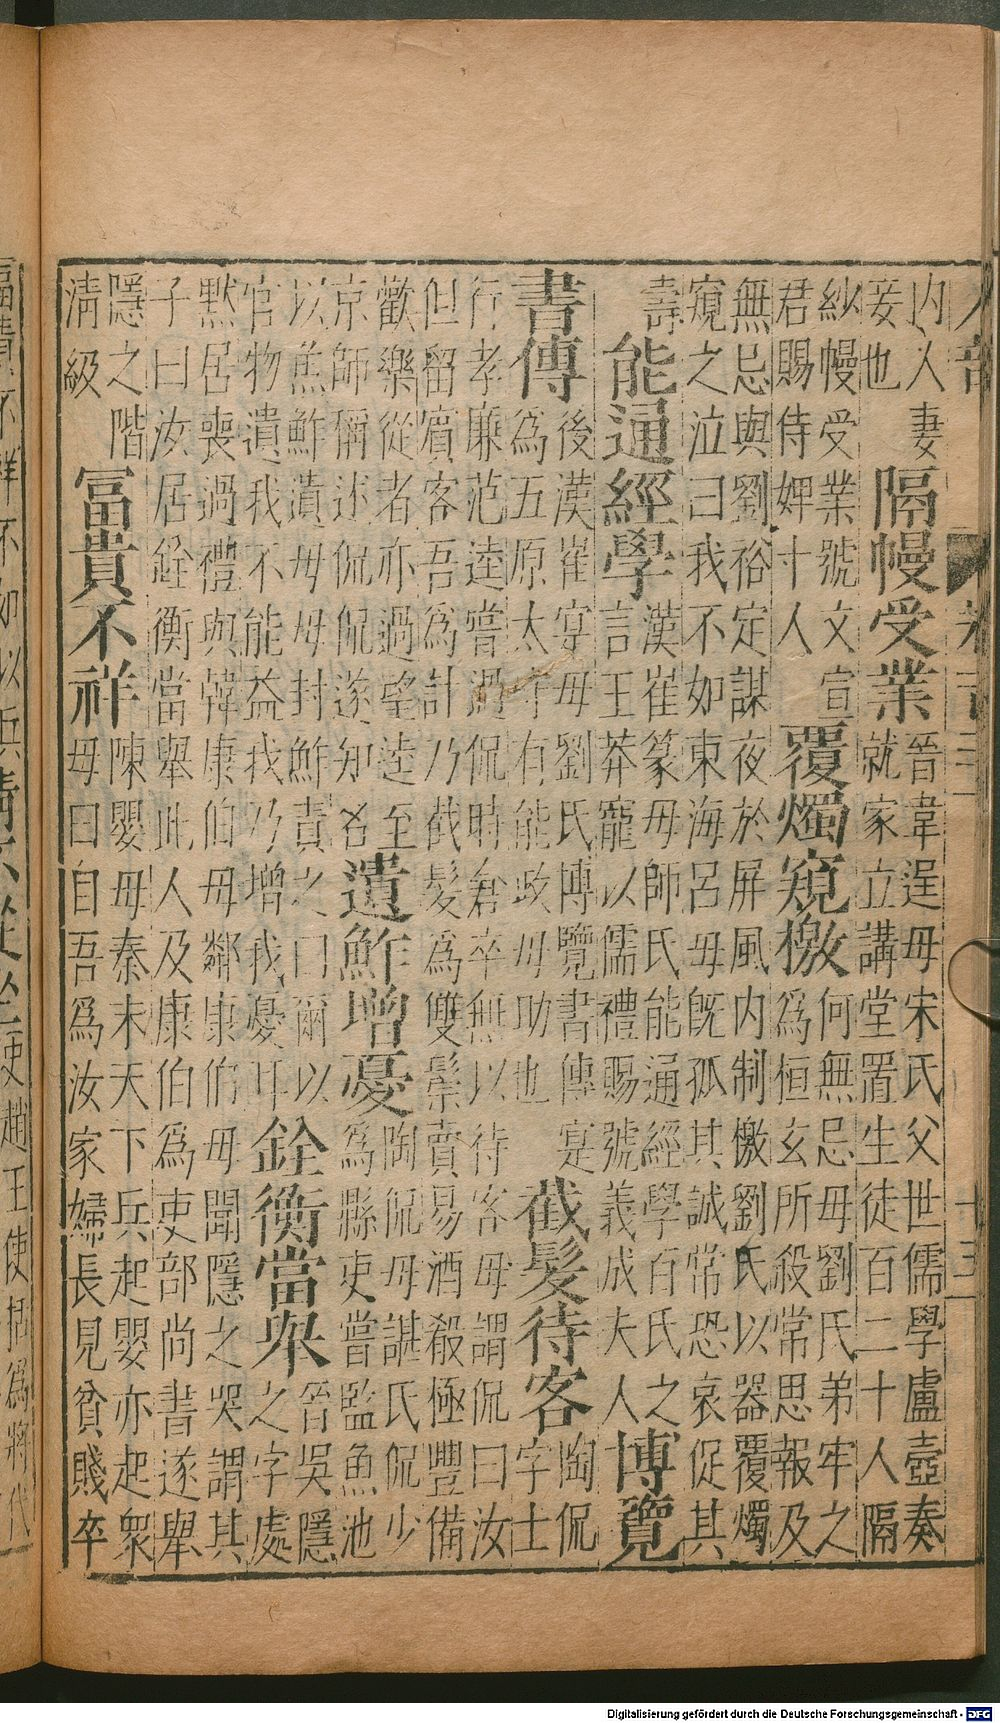 内人妻
妾也
隔幔受業
晉韋逞母宋氏父世儒學盧壼奏
就家立講堂置生徒百二十人隔
紗幔受業號文宣
君賜侍婢十人
覆燭窺檄
何無忌母劉氏弟牢之
為恒玄所殺常思報及
無忌與劉裕定謀夜於屏風内制檄劉氏以器覆燭
窺之泣曰我不如東海呂母既孤其誠常恐哀促其
壽
能通經學
漢崔篆母師氏能通經學百氏之
言王莽寵以儒禮賜號義成夫人
博覽
書傳
後漢崔寔母劉氏博覽書傳寔
為五原太守有能政母助也
截髮待客
陶侃
字士
行孝廉范逵嘗過侃時倉卒無以待客母謂侃曰汝
但留賓客吾為計乃截髮為雙鬃賣易酒殺極豐備
歡樂從者亦過望逵至
京師稱述侃侃遂知名
遺鮓增憂
陶侃母諶氏侃少
為縣吏嘗監魚池
以魚鮓遺母母封鮓責之曰爾以
官物遺我不能益我乃增我憂耳
銓衡當舉
晉吳隱
之字處
默居喪過禮與韓康伯母鄰康伯母聞隱之哭謂其
子曰汝居銓衡當舉此人及康伯為吏部尚書遂舉
隱之階
清級
冨貴不祥
陳嬰母秦末天下兵起嬰亦起衆
母曰自吾為汝家婦長見貧賤卒
不祥不如以兵
趙王使括為將代
Digitalisierung gefördert durch die Deutsche Forschungsgemeinschaft - DFG